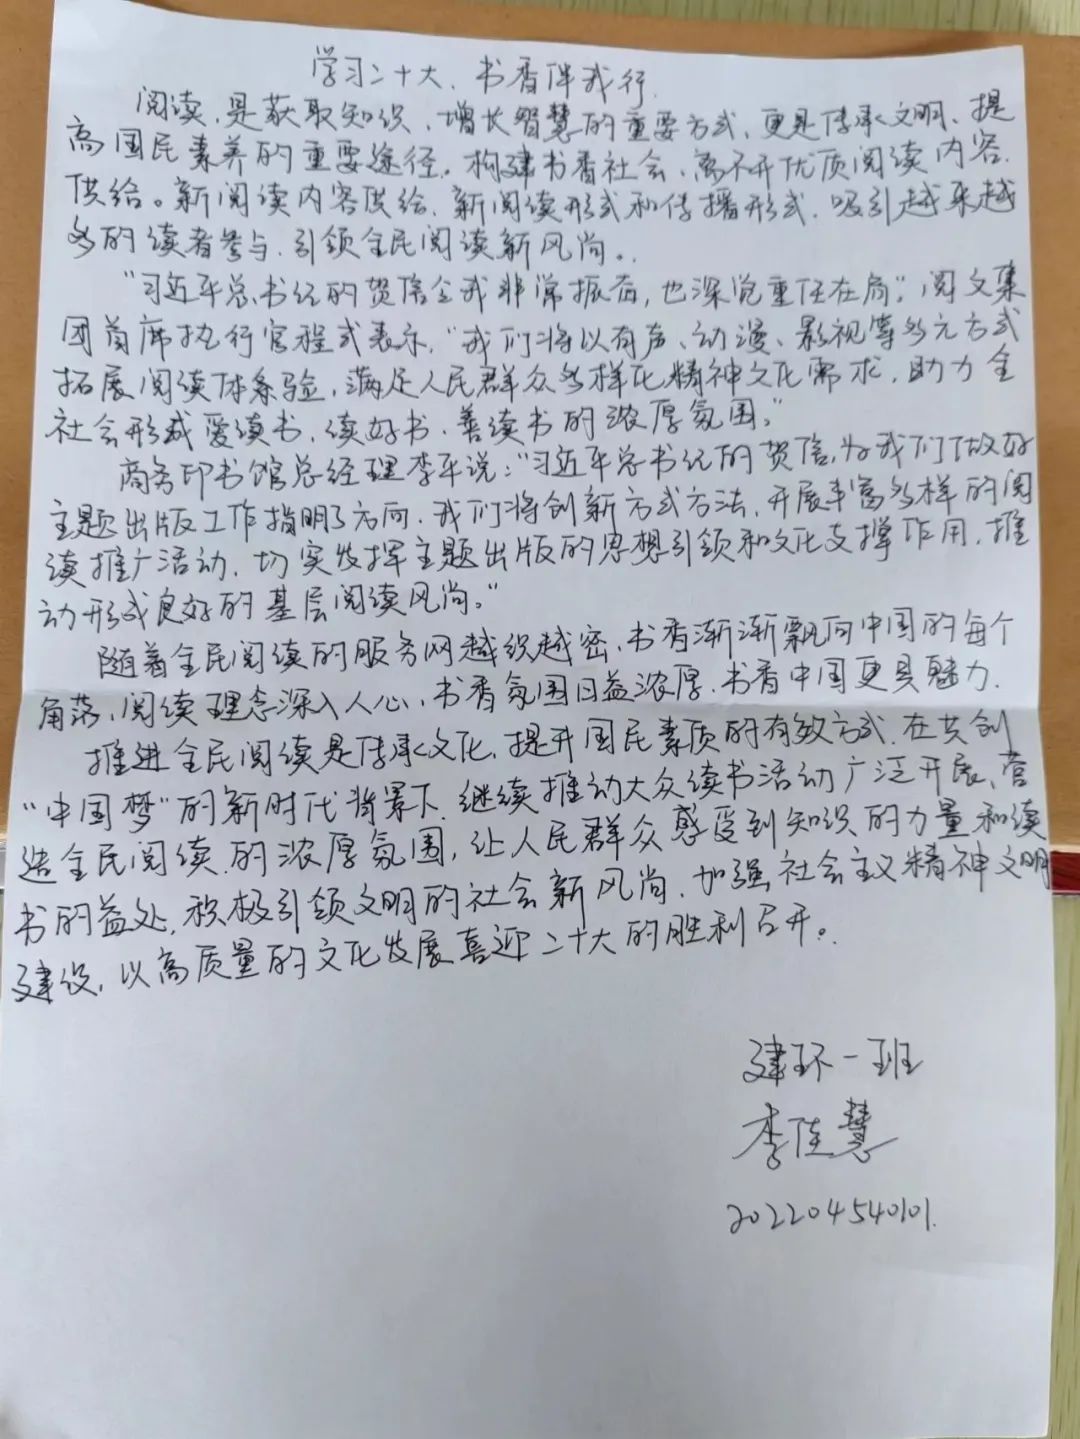 学习二十大、书香伴我行.
阅读,是获取知识、增长智慧的重要方式,更是传承文明、提
高国民素养的重要途径。构建书香社会,离不开优质阅读内容
供给。新阅读内容供给,新阅读形式和传播形式,吸引越来越
多的读者参与,引领全民阅读新风尚。
"习近平总书记的贺信令我非常振奋,也深觉重任在肩"。阅文集
团首席执行官程武表示,"我们将以有声、动漫、影视等多元方式
拓展阅读体系验,满足人民群众多样化精神文化需求,助力全
社会形成爱读书、读好书、善读书的浓厚氛围。"
商务印书馆总经理李平说:"习近平总书记的贺信,为我们做好
主题出版工作指明了方向,我们将创新方式方法,开展丰富多样的阅
读推广活动,切实发挥主题出版的思想引领和文化支撑作用,推
动形成良好的基层阅读风尚。"
随着全民阅读的服务网越织越密,书香渐渐飘向中国的每个
角落,阅读理念深入人心,书香氛围日益浓厚,书香中国更具魅力.
推进全民阅读是传承文化,提升国民素质的有效方式.在共创
"中国梦"的新时代背景下,继续推动大众读书活动广泛开展,营
造全民阅读的浓厚氛围,让人民群众感受到知识的力量和读
书的益处,积极引领文明的社会新风尚,加强社会主义精神文明
建设,以高质量的文化发展喜迎二十大的胜利召开。
建环一班
李佳慧
202204540101.